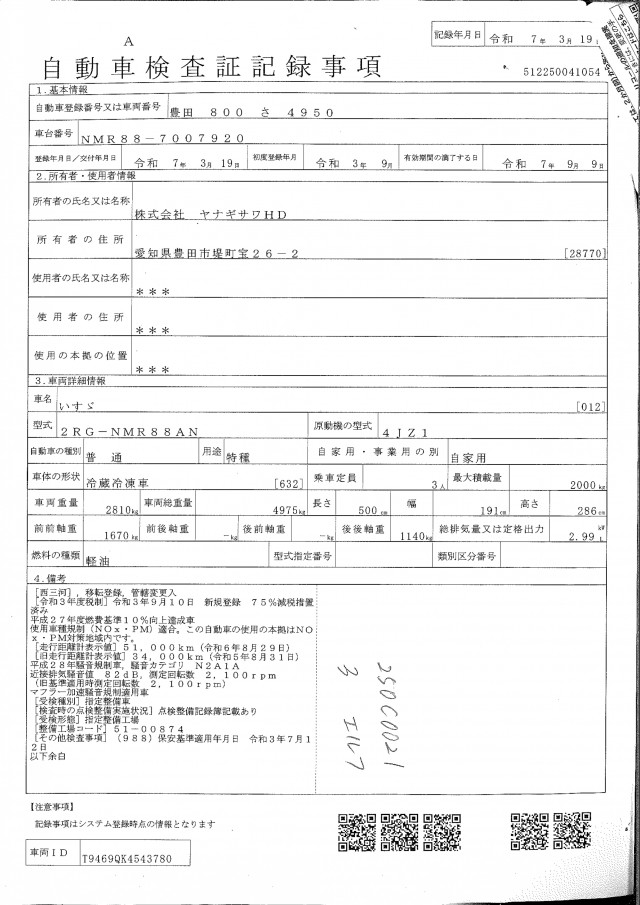 記録年月日 令和 7年 3月 19日
A
自動車検査証記録事項
512250041054
1.基本情報
自動車登録番号又は車両番号 豊田 800 さ 4950
車台番号 NMR88-7007920
登録年月日/交付年月日 令和 7年 3月 19日 初度登録年月 令和 3年 9月 有効期間の満了する日 令和 7年 9月 9日
2.所有者・使用者情報
所有者の氏名又は名称 株式会社 ヤナギサワHD
所有者の住所 愛知県豊田市堤町宝26-2 [28770]
使用者の氏名又は名称 ***
使用者の住所 ***
使用の本拠の位置 ***
3.車両詳細情報
車名 いすゞ [012]
型式 2RG-NMR88AN 原動機の型式 4JZ1
自動車の種別 普通 用途 特種 自家用・事業用の別 自家用
車体の形状 冷蔵冷凍車 [632] 乗車定員 3人 最大積載量 2000kg
車両重量 2810kg 車両総重量 4975kg 長さ 500cm 幅 191cm 高さ 286cm
前前軸重 1670kg 前後軸重 -kg 後前軸重 -kg 後後軸重 1140kg 総排気量又は定格出力 2.99 kW L
燃料の種類 軽油 型式指定番号 類別区分番号
4.備考
[西三河],移転登録,管轄変更入
[令和3年度税制]令和3年9月10日 新規登録 75%減税措置
済み
平成27年度燃費基準10%向上達成車
使用車種規制(NOx・PM)適合。この自動車の使用の本拠はNO
x・PM対策地域内です。
[走行距離計表示値]51,000km(令和6年8月29日)
[旧走行距離計表示値]34,000km(令和5年8月31日)
平成28年騒音規制車,騒音カテゴリ N2A1A
近接排気騒音値 82dB,測定回転数 2,100rpm
(旧基準適用時測定回転数 2,100rpm)
マフラー加速騒音規制適用車
[受検種別]指定整備車
[検査時の点検整備実施状況]点検整備記録簿記載あり
[受検形態]指定整備工場
[整備工場コード]51-00874
[その他検査事項](988)保安基準適用年月日 令和3年7月1
2日
以下余白
250C0021
3 エルフ
【注意事項】
記録事項はシステム登録時点の情報となります
車両ID T9469QK4543780